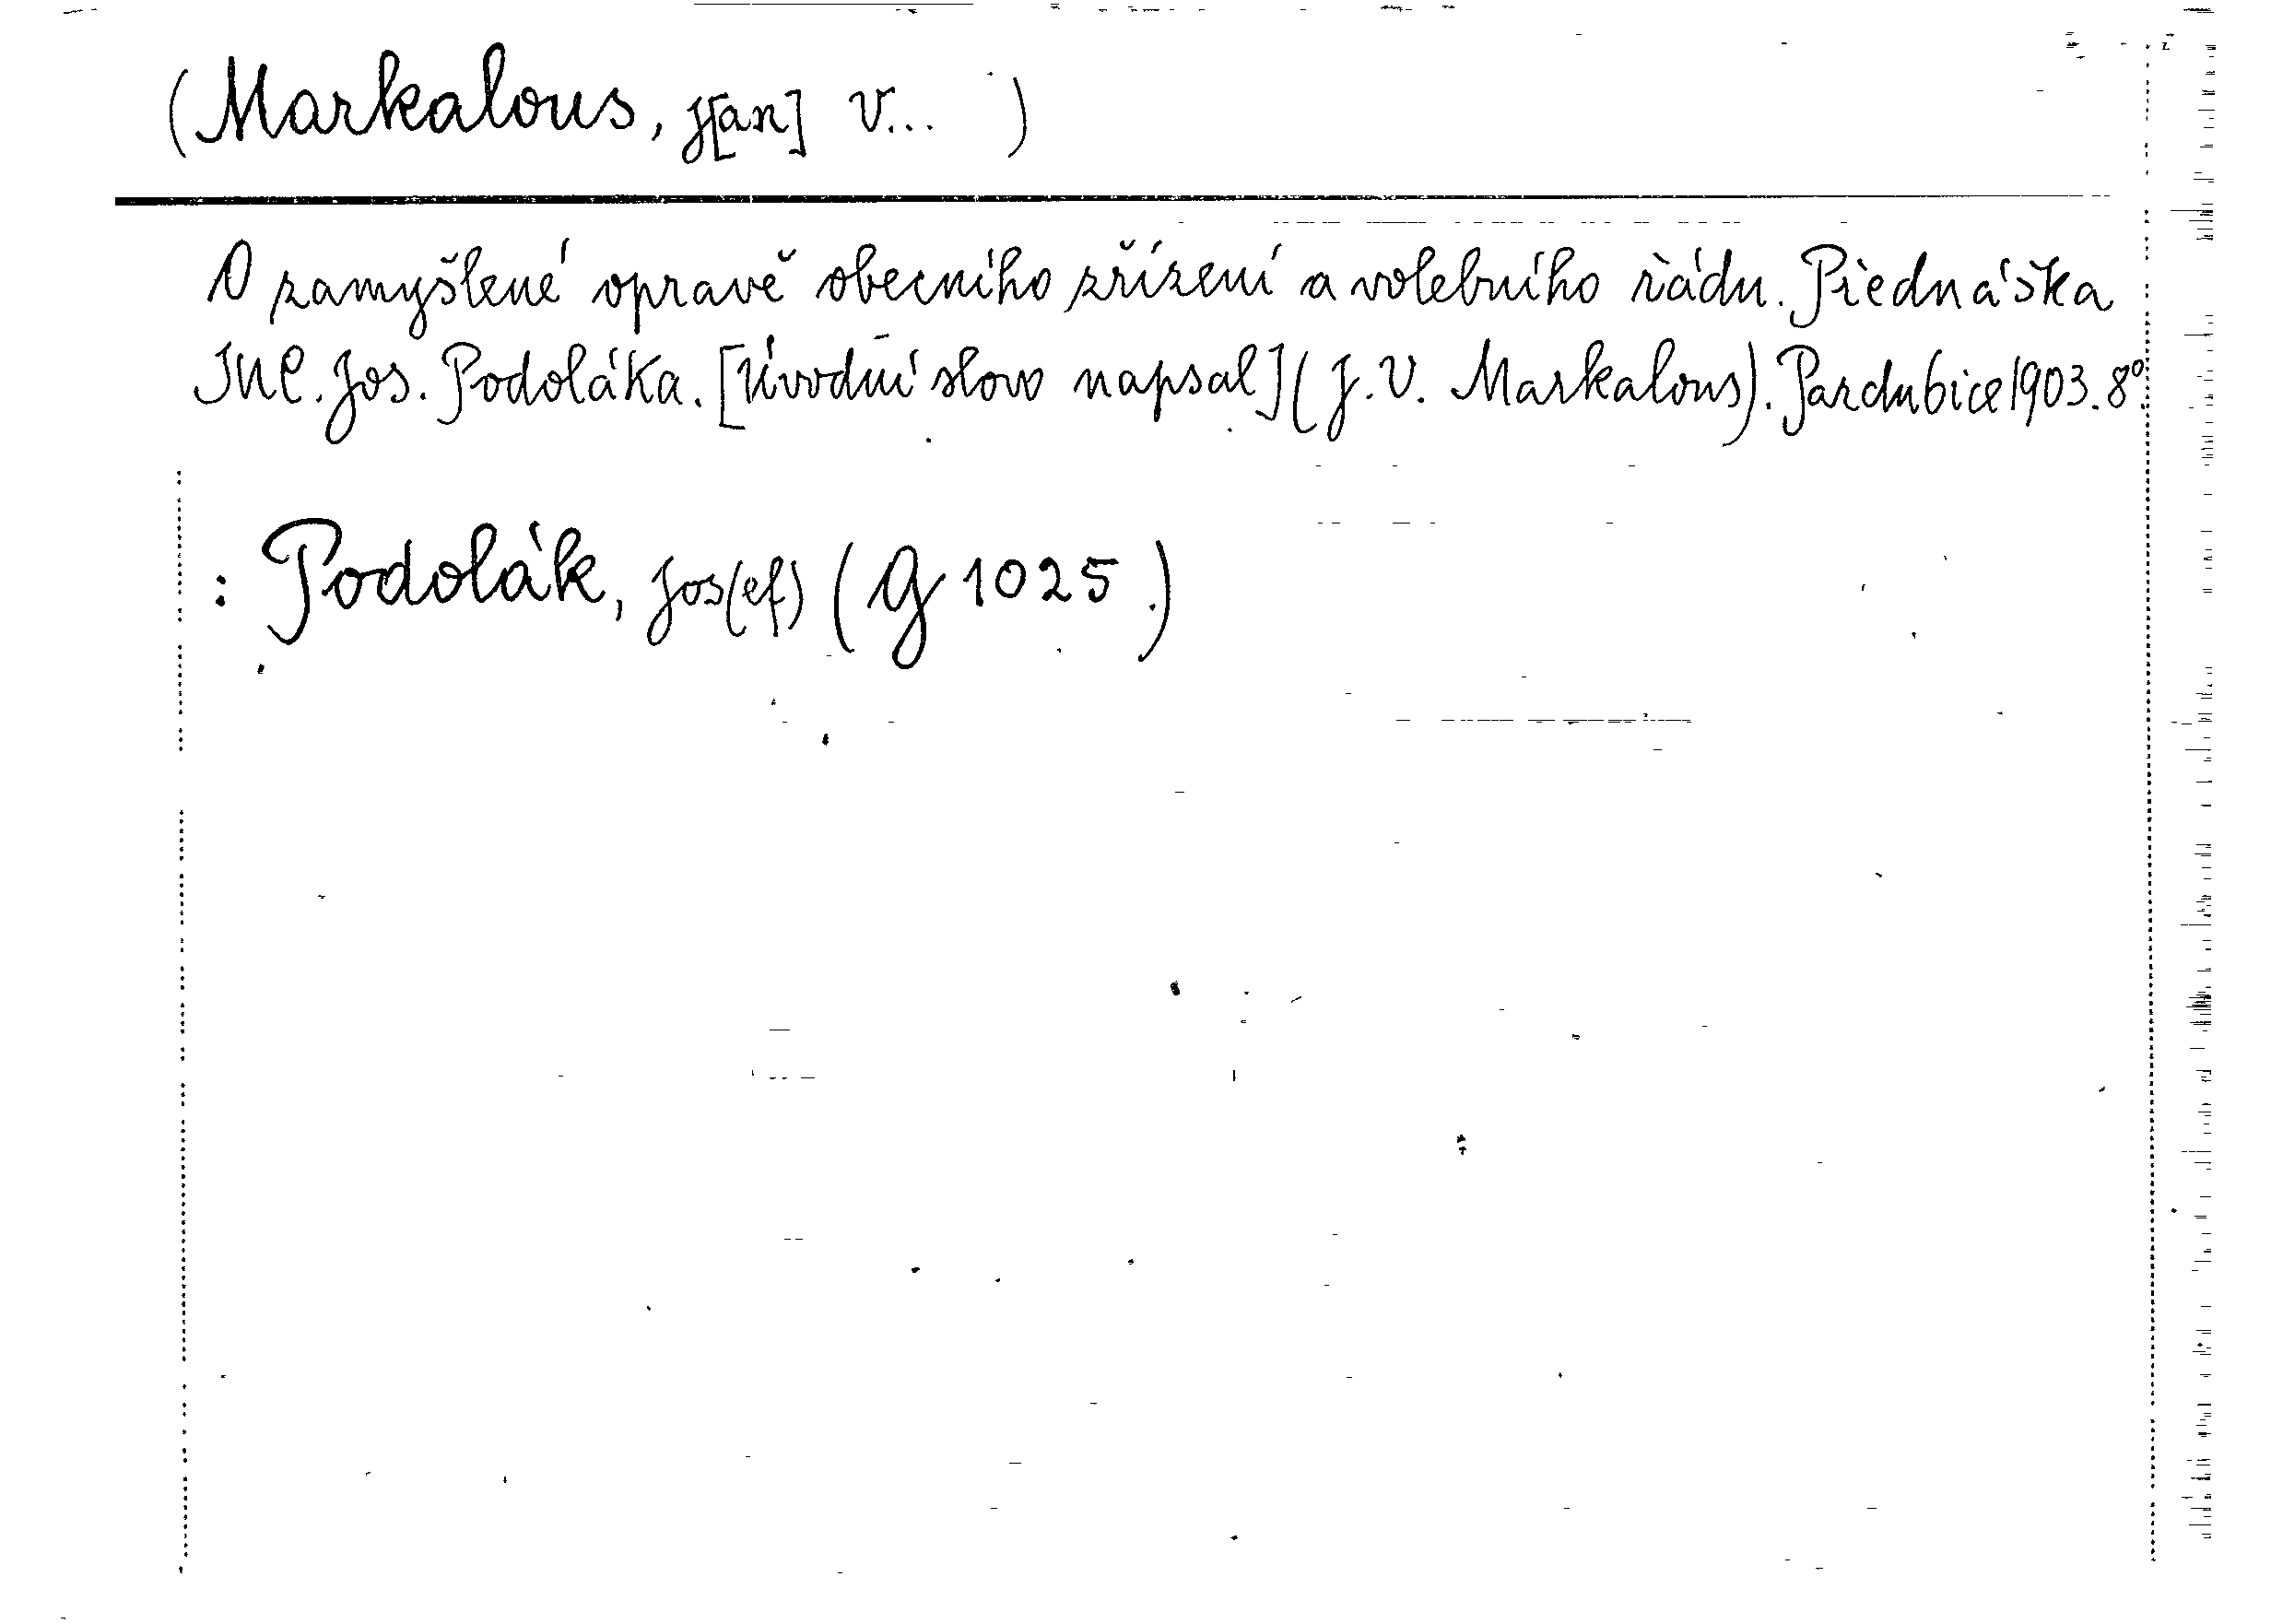 (Markalous, J[an] V... )
O zamyšlené opravě obecního zřízení a volebního řádu. Přednáška
JUC. Jos. Podoláka. [Úvodní slovo napsal] (J. V. Markalous). Pardubice 1903. 8°.
: Podolák, Jos(ef) (G 1025.)